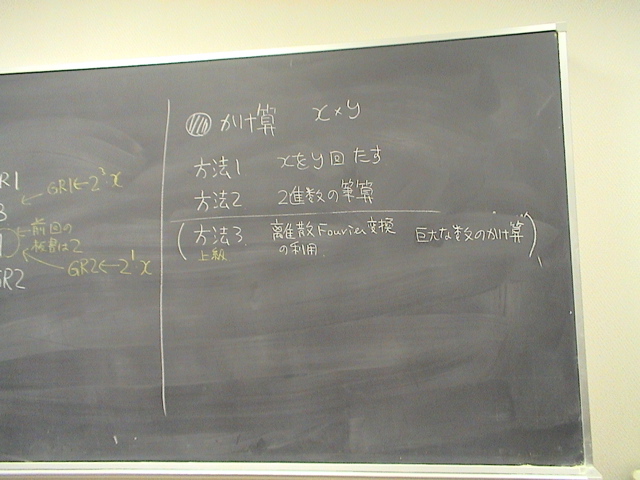 R1
GR1←2³·x
3
前回の
板書は2
GR2←2¹·x
GR2
かけ算 x×y
方法1 xをy回たす
方法2 2進数の筆算
(方法3 離散Fourier変換 巨大な数のかけ算)
上級 の利用